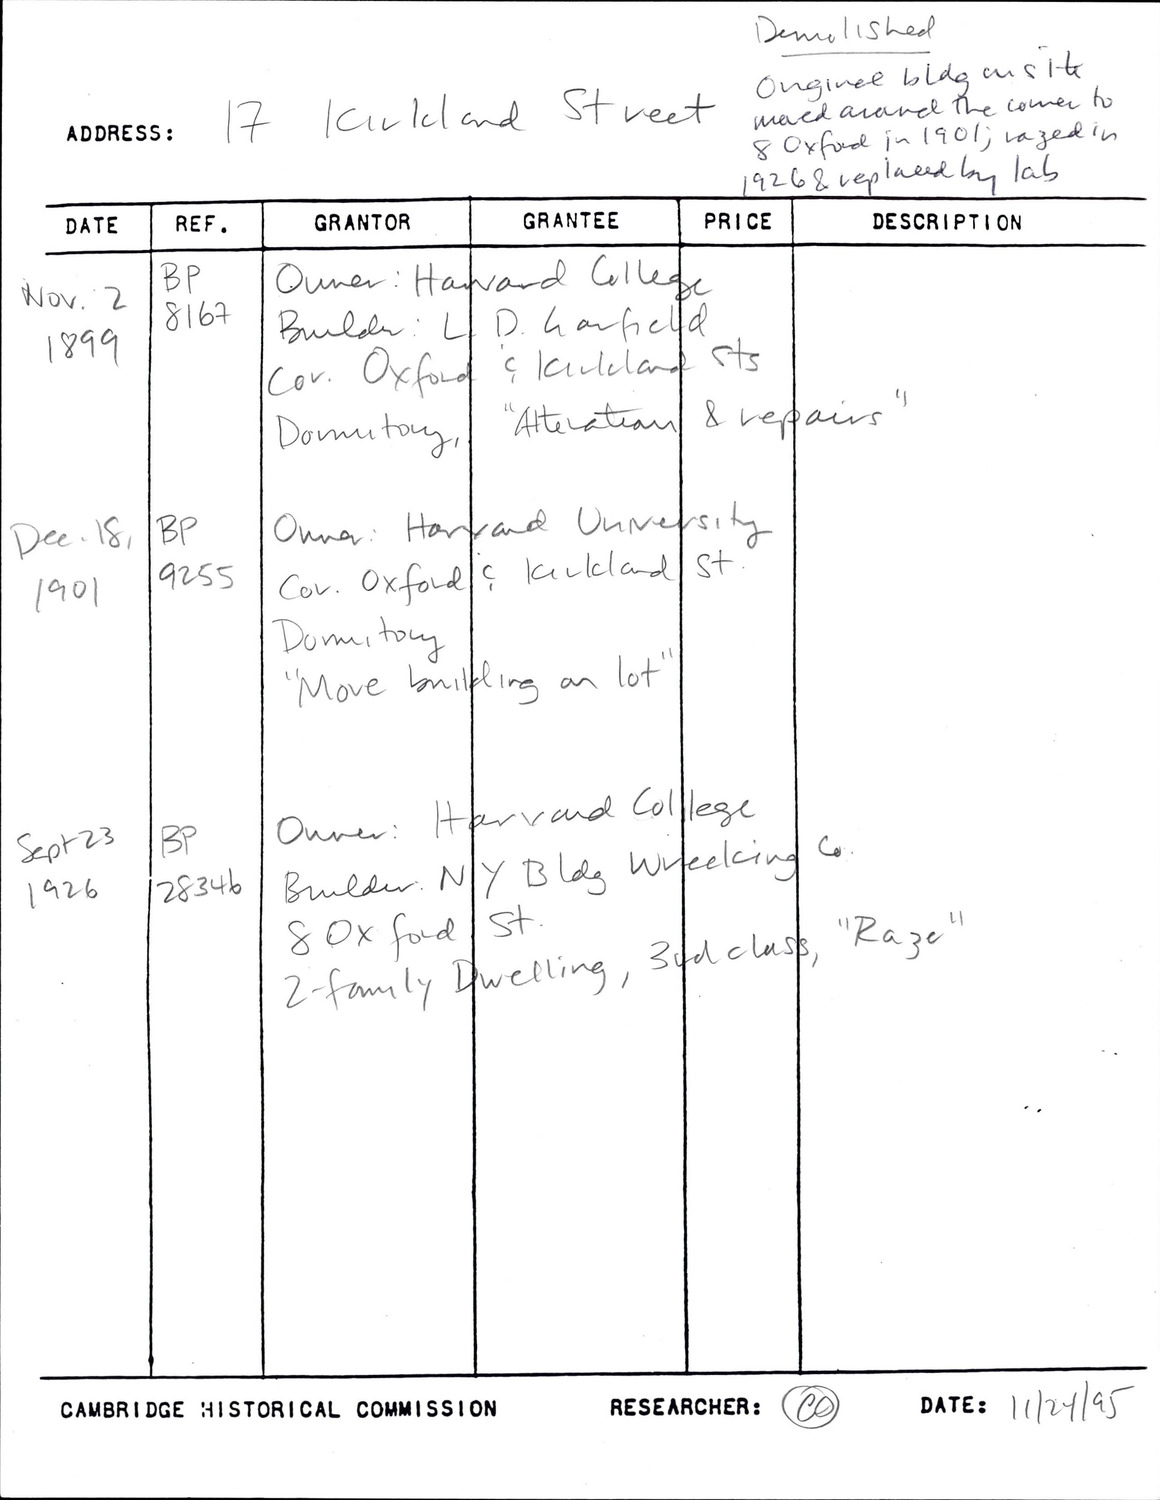 Demolished
Original bldg on site
moved around the corner to
8 Oxford in 1901; razed in
1926 & replaced by lab
ADDRESS: 17 Kirkland Street
DATE REF. GRANTOR GRANTEE PRICE DESCRIPTION
Nov. 2 1899 BP 8167 Owner: Harvard College
Builder: L. D. Garfield
Cor. Oxford & Kirkland Sts
Dormitory, "Alteration & repairs"
Dec. 18, 1901 BP 9255 Owner: Harvard University
Cor. Oxford & Kirkland St.
Dormitory
"Move building on lot"
Sept 23 1926 BP 28346 Owner: Harvard College
Builder: N Y Bldg Wrecking Co.
8 Oxford St.
2-family Dwelling, 3rd class, "Raze"
CAMBRIDGE HISTORICAL COMMISSION RESEARCHER: DATE: 11/24/95